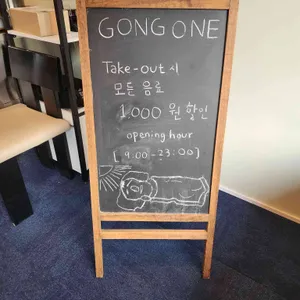 GONG ONE
Take-out 시
모든 음료
1,000 원 할인
opening hour
[9:00-23:00]